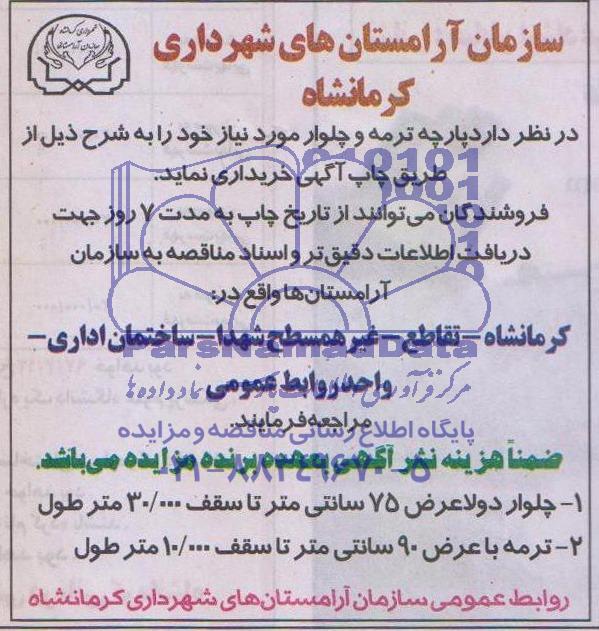 شهرداری کرمانشاه
سازمان آرامستانها
سازمان آرامستان های شهرداری
کرمانشاه
در نظر دارد پارچه ترمه و چلوار مورد نیاز خود را به شرح ذیل از
طریق چاپ آگهی خریداری نماید.
فروشندگان می‌توانند از تاریخ چاپ به مدت ۷ روز جهت
دریافت اطلاعات دقیق‌تر و اسناد مناقصه به سازمان
آرامستان‌ها واقع در:
کرمانشاه – تقاطع – غیر همسطح شهدا – ساختمان اداری –
ParsNamadData
واحد روابط عمومی
مراجعه فرمایند.
پایگاه اطلاع رسانی مناقصه و مزایده
ضمناً هزینه نشر آگهی به عهده برنده مزایده می‌باشد.
۱- چلوار دولا عرض ۷۵ سانتی متر تا سقف ۳۰/۰۰۰ متر طول
۲- ترمه با عرض ۹۰ سانتی متر تا سقف ۱۰/۰۰۰ متر طول
روابط عمومی سازمان آرامستان‌های شهرداری کرمانشاه